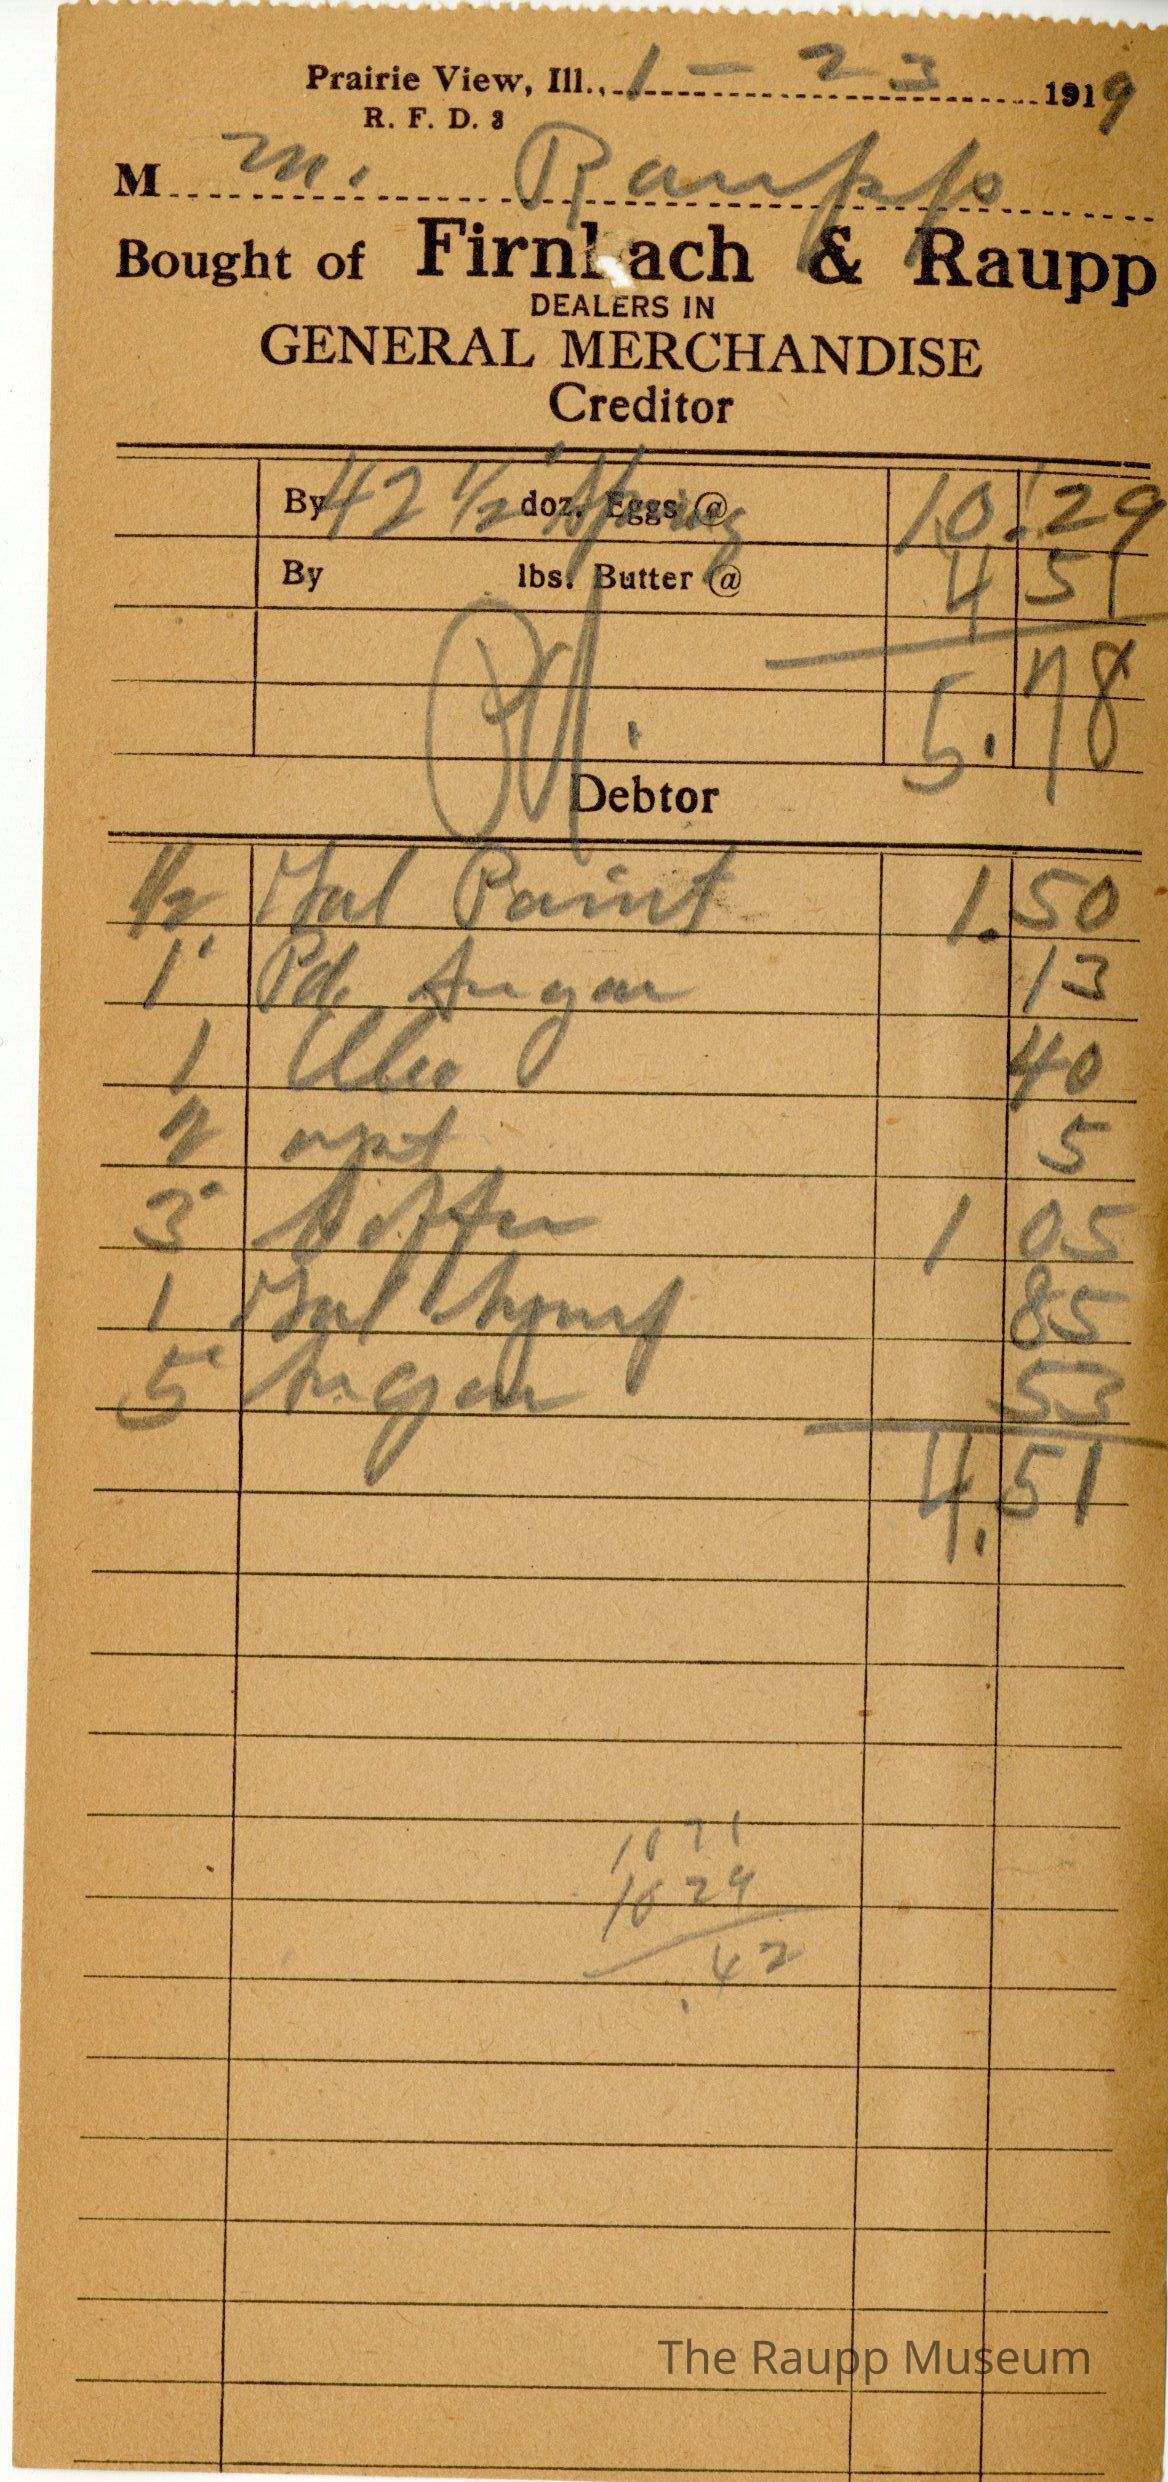 Prairie View, Ill., 1 - 23 1919
R. F. D. 3
M m. Raupp
Bought of Firnbach & Raupp
DEALERS IN
GENERAL MERCHANDISE
Creditor
By 42 1/2 doz. Eggs @ Spring 10.29
By lbs. Butter @ 4 51
Pd. 5.78
Debtor
1/2 Gal Paint 1.50
1 Pd. Sugar 13
1 Oleo 40
5
3 Coffee 1 05
1 Gal Syrup 85
5 Sugar 53
4.51
10 71
10 29
.42
The Raupp Museum